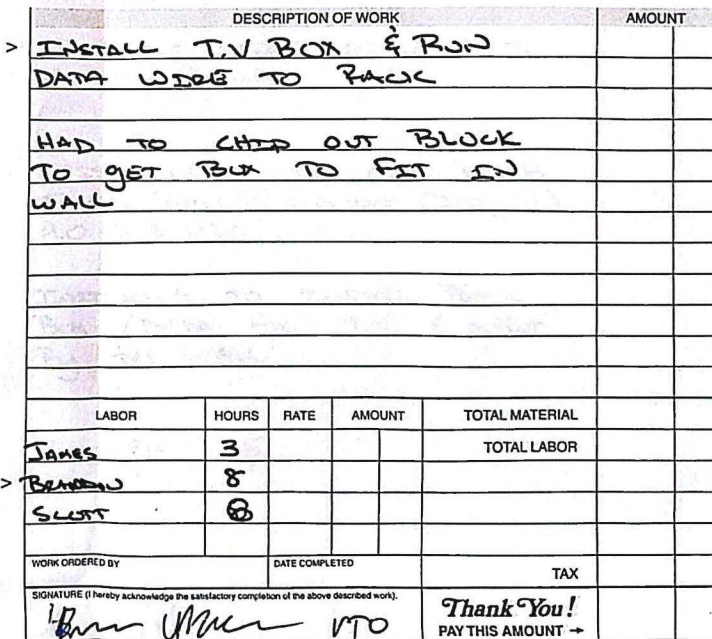 DESCRIPTION OF WORK AMOUNT
> INSTALL T.V. BOX & RUN
DATA WIRE TO RACK
HAD TO CHIP OUT BLOCK
TO GET BOX TO FIT IN
WALL
LABOR HOURS RATE AMOUNT TOTAL MATERIAL
JAMES 3 TOTAL LABOR
> BRANDON 8
SCOTT 8
WORK ORDERED BY DATE COMPLETED TAX
SIGNATURE (I hereby acknowledge the satisfactory completion of the above described work).
Thank You!
PAY THIS AMOUNT →